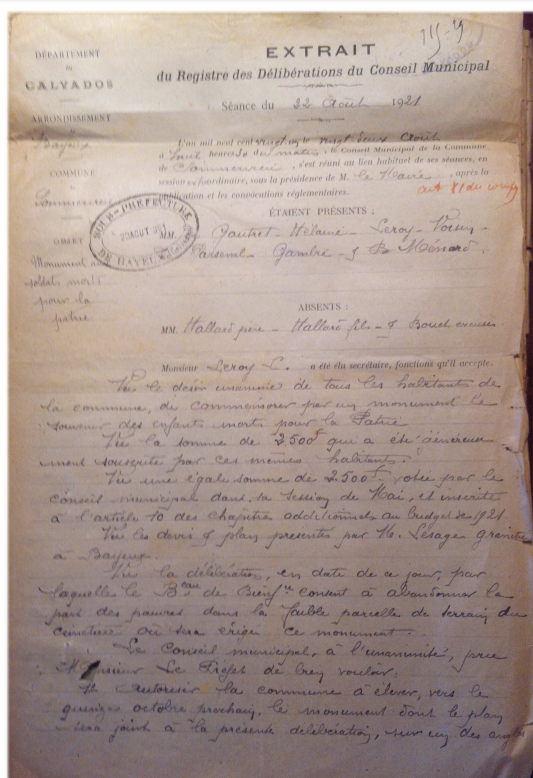 EXTRAIT
du Registre des Délibérations du Conseil Municipal
Séance du 22 Août 1921
DÉPARTEMENT
du
CALVADOS
ARRONDISSEMENT
de
Bayeux
COMMUNE
de
Commes
OBJET
Monument aux
soldats morts
pour la
patrie
SOUS-PRÉFECTURE
DE BAYEUX
L'an mil neuf cent vingt un le vingt deux Août
à huit heures du matin, le Conseil Municipal de la Commune
de, s'est réuni au lieu habituel de ses séances, en
session extraordinaire, sous la présidence de M. le Maire, après la
publication et les convocations réglementaires.
ÉTAIENT PRÉSENTS :
Gautret - Hélaine - Leroy - Voisin -
Gambré & Ménard.
ABSENTS :
MM. Hallard père - Hallard fils - & Bouch excusés
Monsieur Leroy L. a été élu secrétaire, fonctions qu'il accepte.
Vu le désir unanime de tous les habitants de
la commune, de commémorer par un monument le
souvenir des enfants morts pour la Patrie
Vu la somme de 2.500f qui a été généreuse
ment souscrite par ces mêmes habitants.
Vu une égale somme de 2500f votée par le
conseil municipal dans sa session de Mai, et inscrite
à l'article 10 des chapitres additionnels au budget de 1921.
Vu les devis & plan présentés par M. Lesage granitier
à Bayeux.
Vu la délibération, en date de ce jour, par
laquelle le Bau de Bienfce consent à abandonner la
part des pauvres dans la faible parcelle de terrain du
cimetière où sera érigé ce monument.
Le Conseil municipal, à l'unanimité, prie
Monsieur Le Préfet de bien vouloir:
1º Autoriser la commune à élever, vers le
quinze octobre prochain, le monument dont le plan
sera joint à la présente délibération, sur un des angles